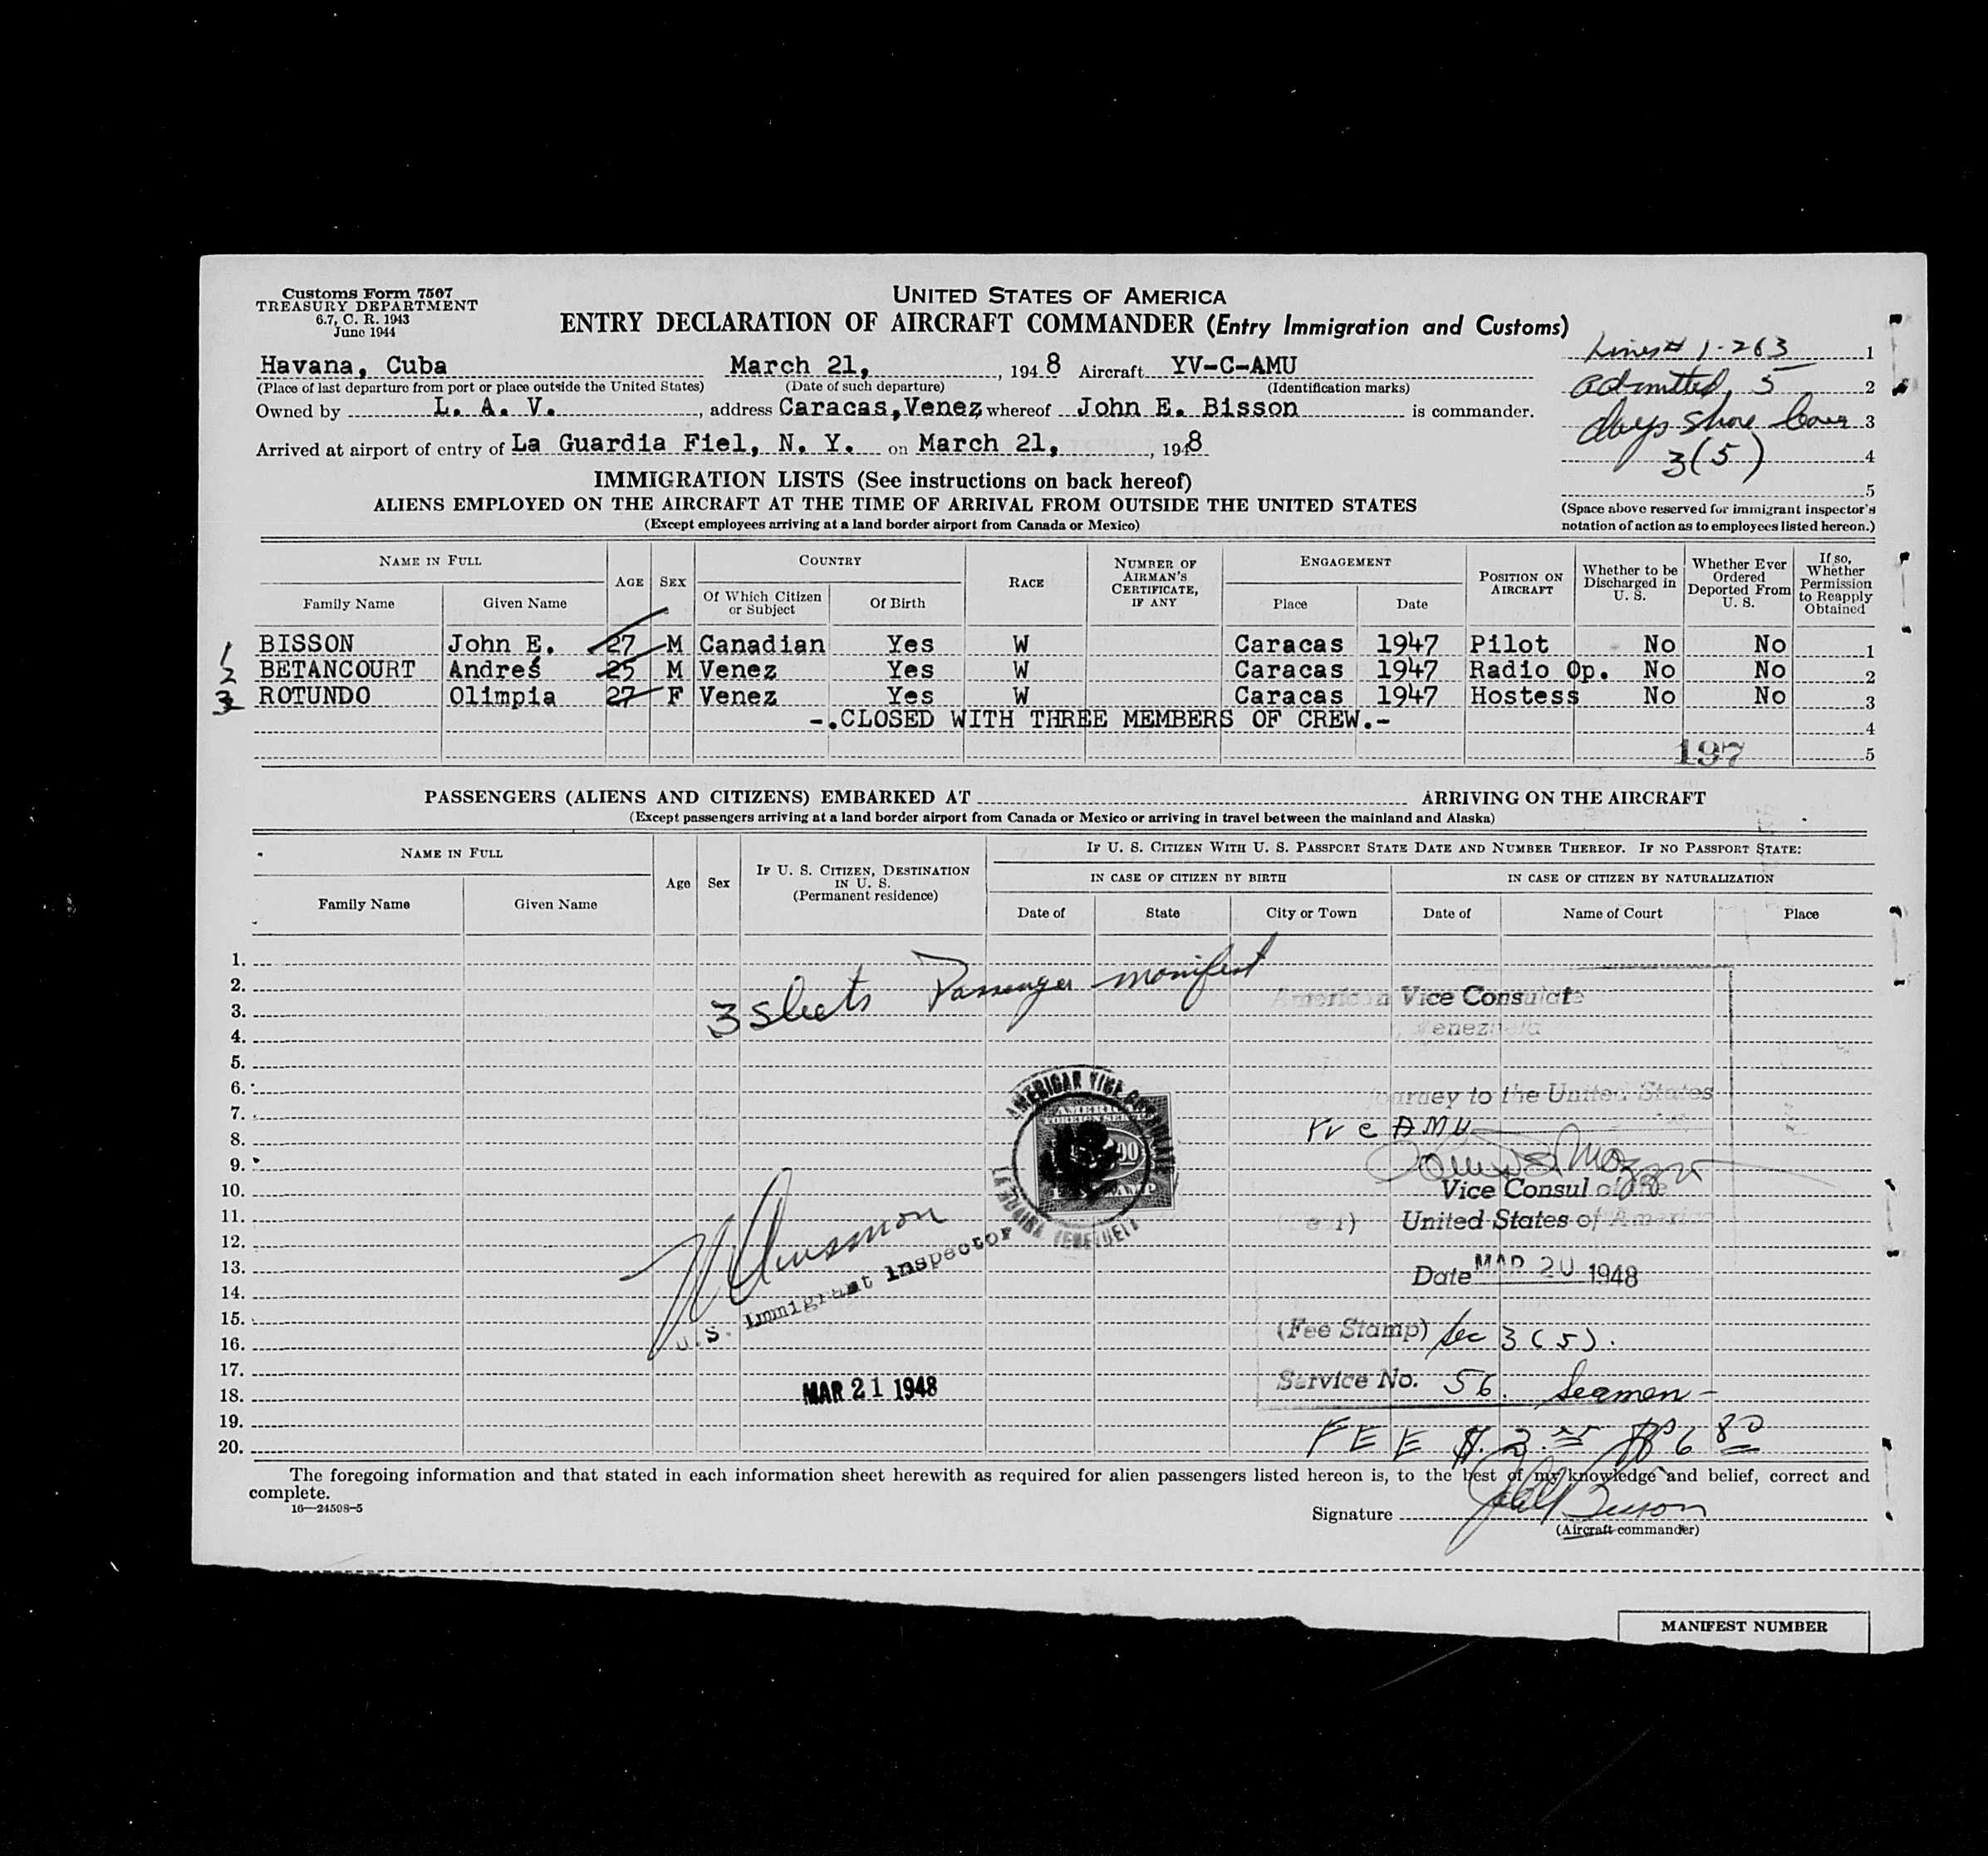 Customs Form 7507
TREASURY DEPARTMENT
6.7, C. R. 1943
June 1944
UNITED STATES OF AMERICA
ENTRY DECLARATION OF AIRCRAFT COMMANDER (Entry Immigration and Customs)
Havana, Cuba March 21, 1948 Aircraft YV-C-AMU
(Place of last departure from port or place outside the United States) (Date of such departure) (Identification marks)
Owned by L. A. V., address Caracas,Venez whereof John E. Bisson is commander.
Arrived at airport of entry of La Guardia Fiel, N. Y. on March 21, 1948
Lines # 1-263 1
admitted, 5 2
days shore leave 3
3(5) 4
5
(Space above reserved for immigrant inspector's
notation of action as to employees listed hereon.)
IMMIGRATION LISTS (See instructions on back hereof)
ALIENS EMPLOYED ON THE AIRCRAFT AT THE TIME OF ARRIVAL FROM OUTSIDE THE UNITED STATES
(Except employees arriving at a land border airport from Canada or Mexico)
NAME IN FULL
Family Name Given Name
AGE SEX
COUNTRY
Of Which Citizen or Subject Of Birth
RACE
NUMBER OF AIRMAN'S CERTIFICATE, IF ANY
ENGAGEMENT
Place Date
POSITION ON AIRCRAFT
Whether to be Discharged in U. S.
Whether Ever Ordered Deported From U. S.
If so, Whether Permission to Reapply Obtained
1 BISSON John E. 27 M Canadian Yes W Caracas 1947 Pilot No No 1
2 BETANCOURT Andres 25 M Venez Yes W Caracas 1947 Radio Op. No No 2
3 ROTUNDO Olimpia 27 F Venez Yes W Caracas 1947 Hostess No No 3
-.CLOSED WITH THREE MEMBERS OF CREW.- 4
197 5
PASSENGERS (ALIENS AND CITIZENS) EMBARKED AT ARRIVING ON THE AIRCRAFT
(Except passengers arriving at a land border airport from Canada or Mexico or arriving in travel between the mainland and Alaska)
NAME IN FULL
Family Name Given Name
Age Sex
IF U. S. CITIZEN, DESTINATION IN U. S. (Permanent residence)
IF U. S. CITIZEN WITH U. S. PASSPORT STATE DATE AND NUMBER THEREOF. IF NO PASSPORT STATE:
IN CASE OF CITIZEN BY BIRTH IN CASE OF CITIZEN BY NATURALIZATION
Date of State City or Town Date of Name of Court Place
1.
2.
3.
4.
5.
6.
7.
8.
9.
10.
11.
12.
13.
14.
15.
16.
17.
18.
19.
20.
3 sheets Passenger manifest
American Vice Consulate
Venezuela
journey to the United States
AMU
Vice Consul of the
United States of America
Date MAR 20 1948
(Fee Stamp) Sec 3 (5).
Service No. 56. Seamen-
FEE
AMERICAN VICE CONSULATE
LA GUAIRA VENEZUELA
AMERICAN
FOREIGN SERVICE
U.S. Immigrant Inspector
MAR 21 1948
The foregoing information and that stated in each information sheet herewith as required for alien passengers listed hereon is, to the best of my knowledge and belief, correct and
complete.
16—24598-5
Signature John E Bisson
(Aircraft commander)
MANIFEST NUMBER